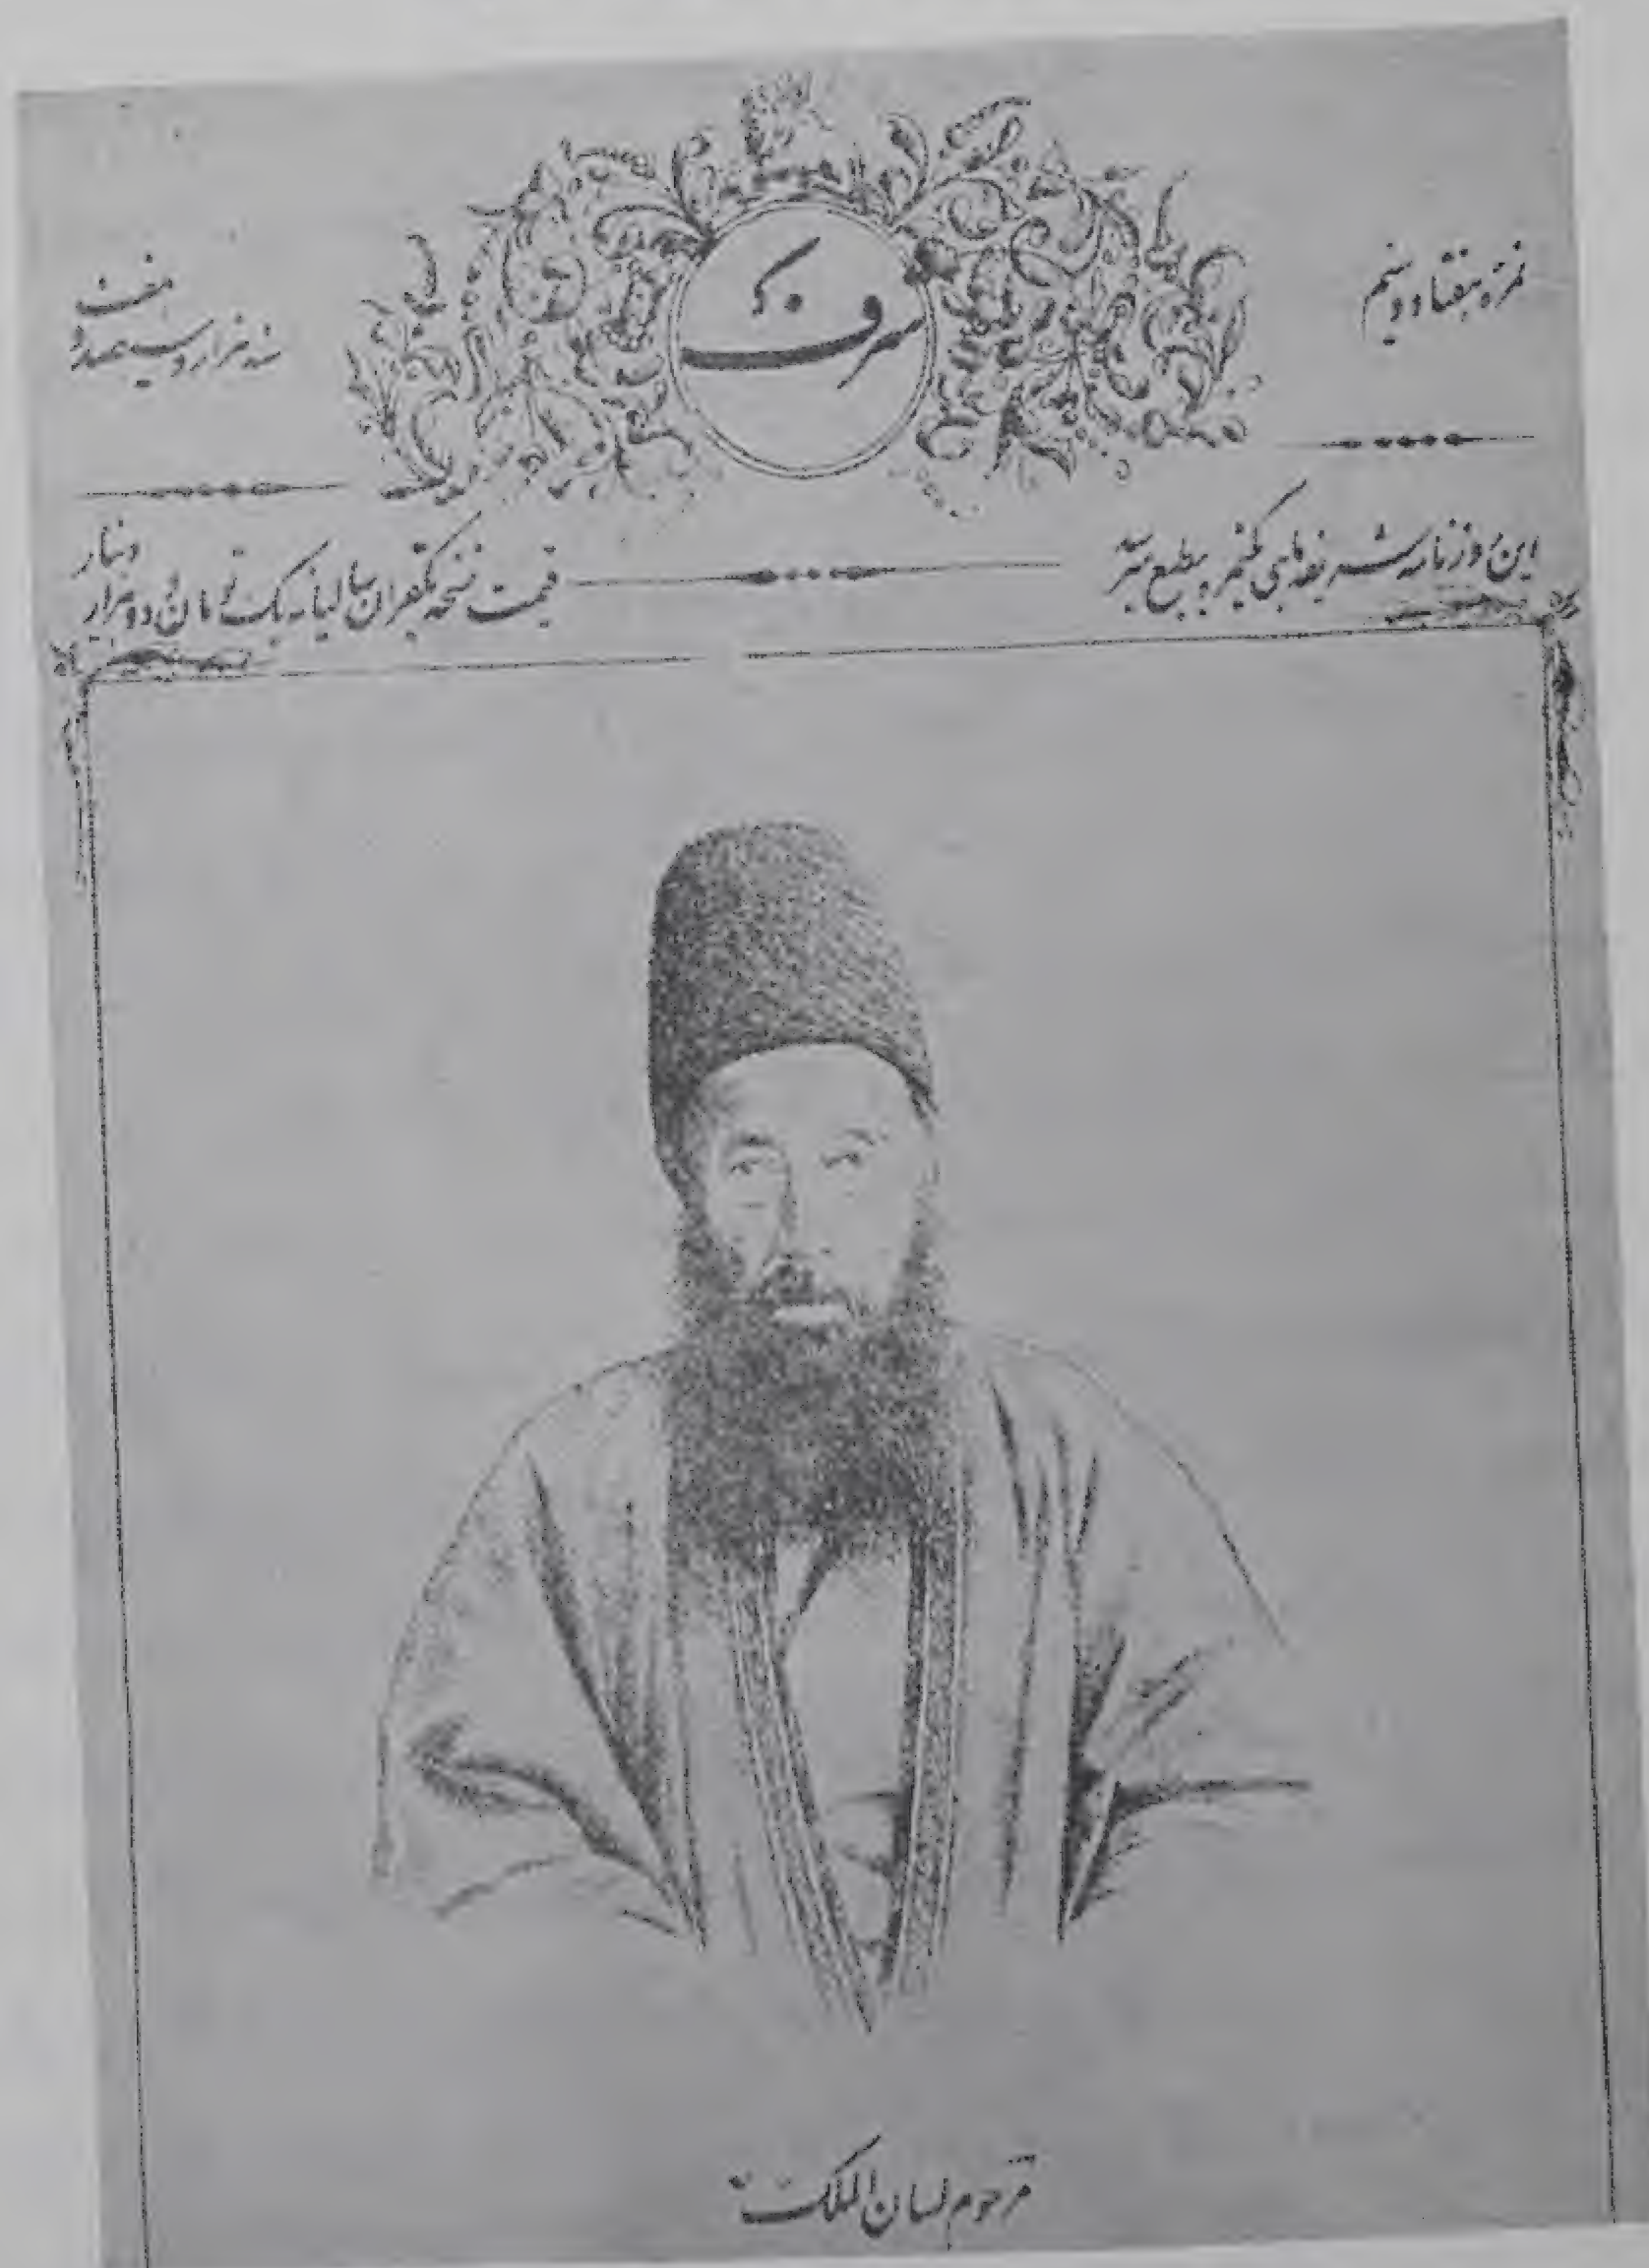 نمرهٔ هفتاد و پنجم
شرف
سنه هزار و سیصد و
هفت
این روزنامه شریفه ماهی یکنمره بطبع میرسد
قیمت نسخه یکقران سالیانه یک تومان و دو هزار
دینار
مرحوم لسان الملک